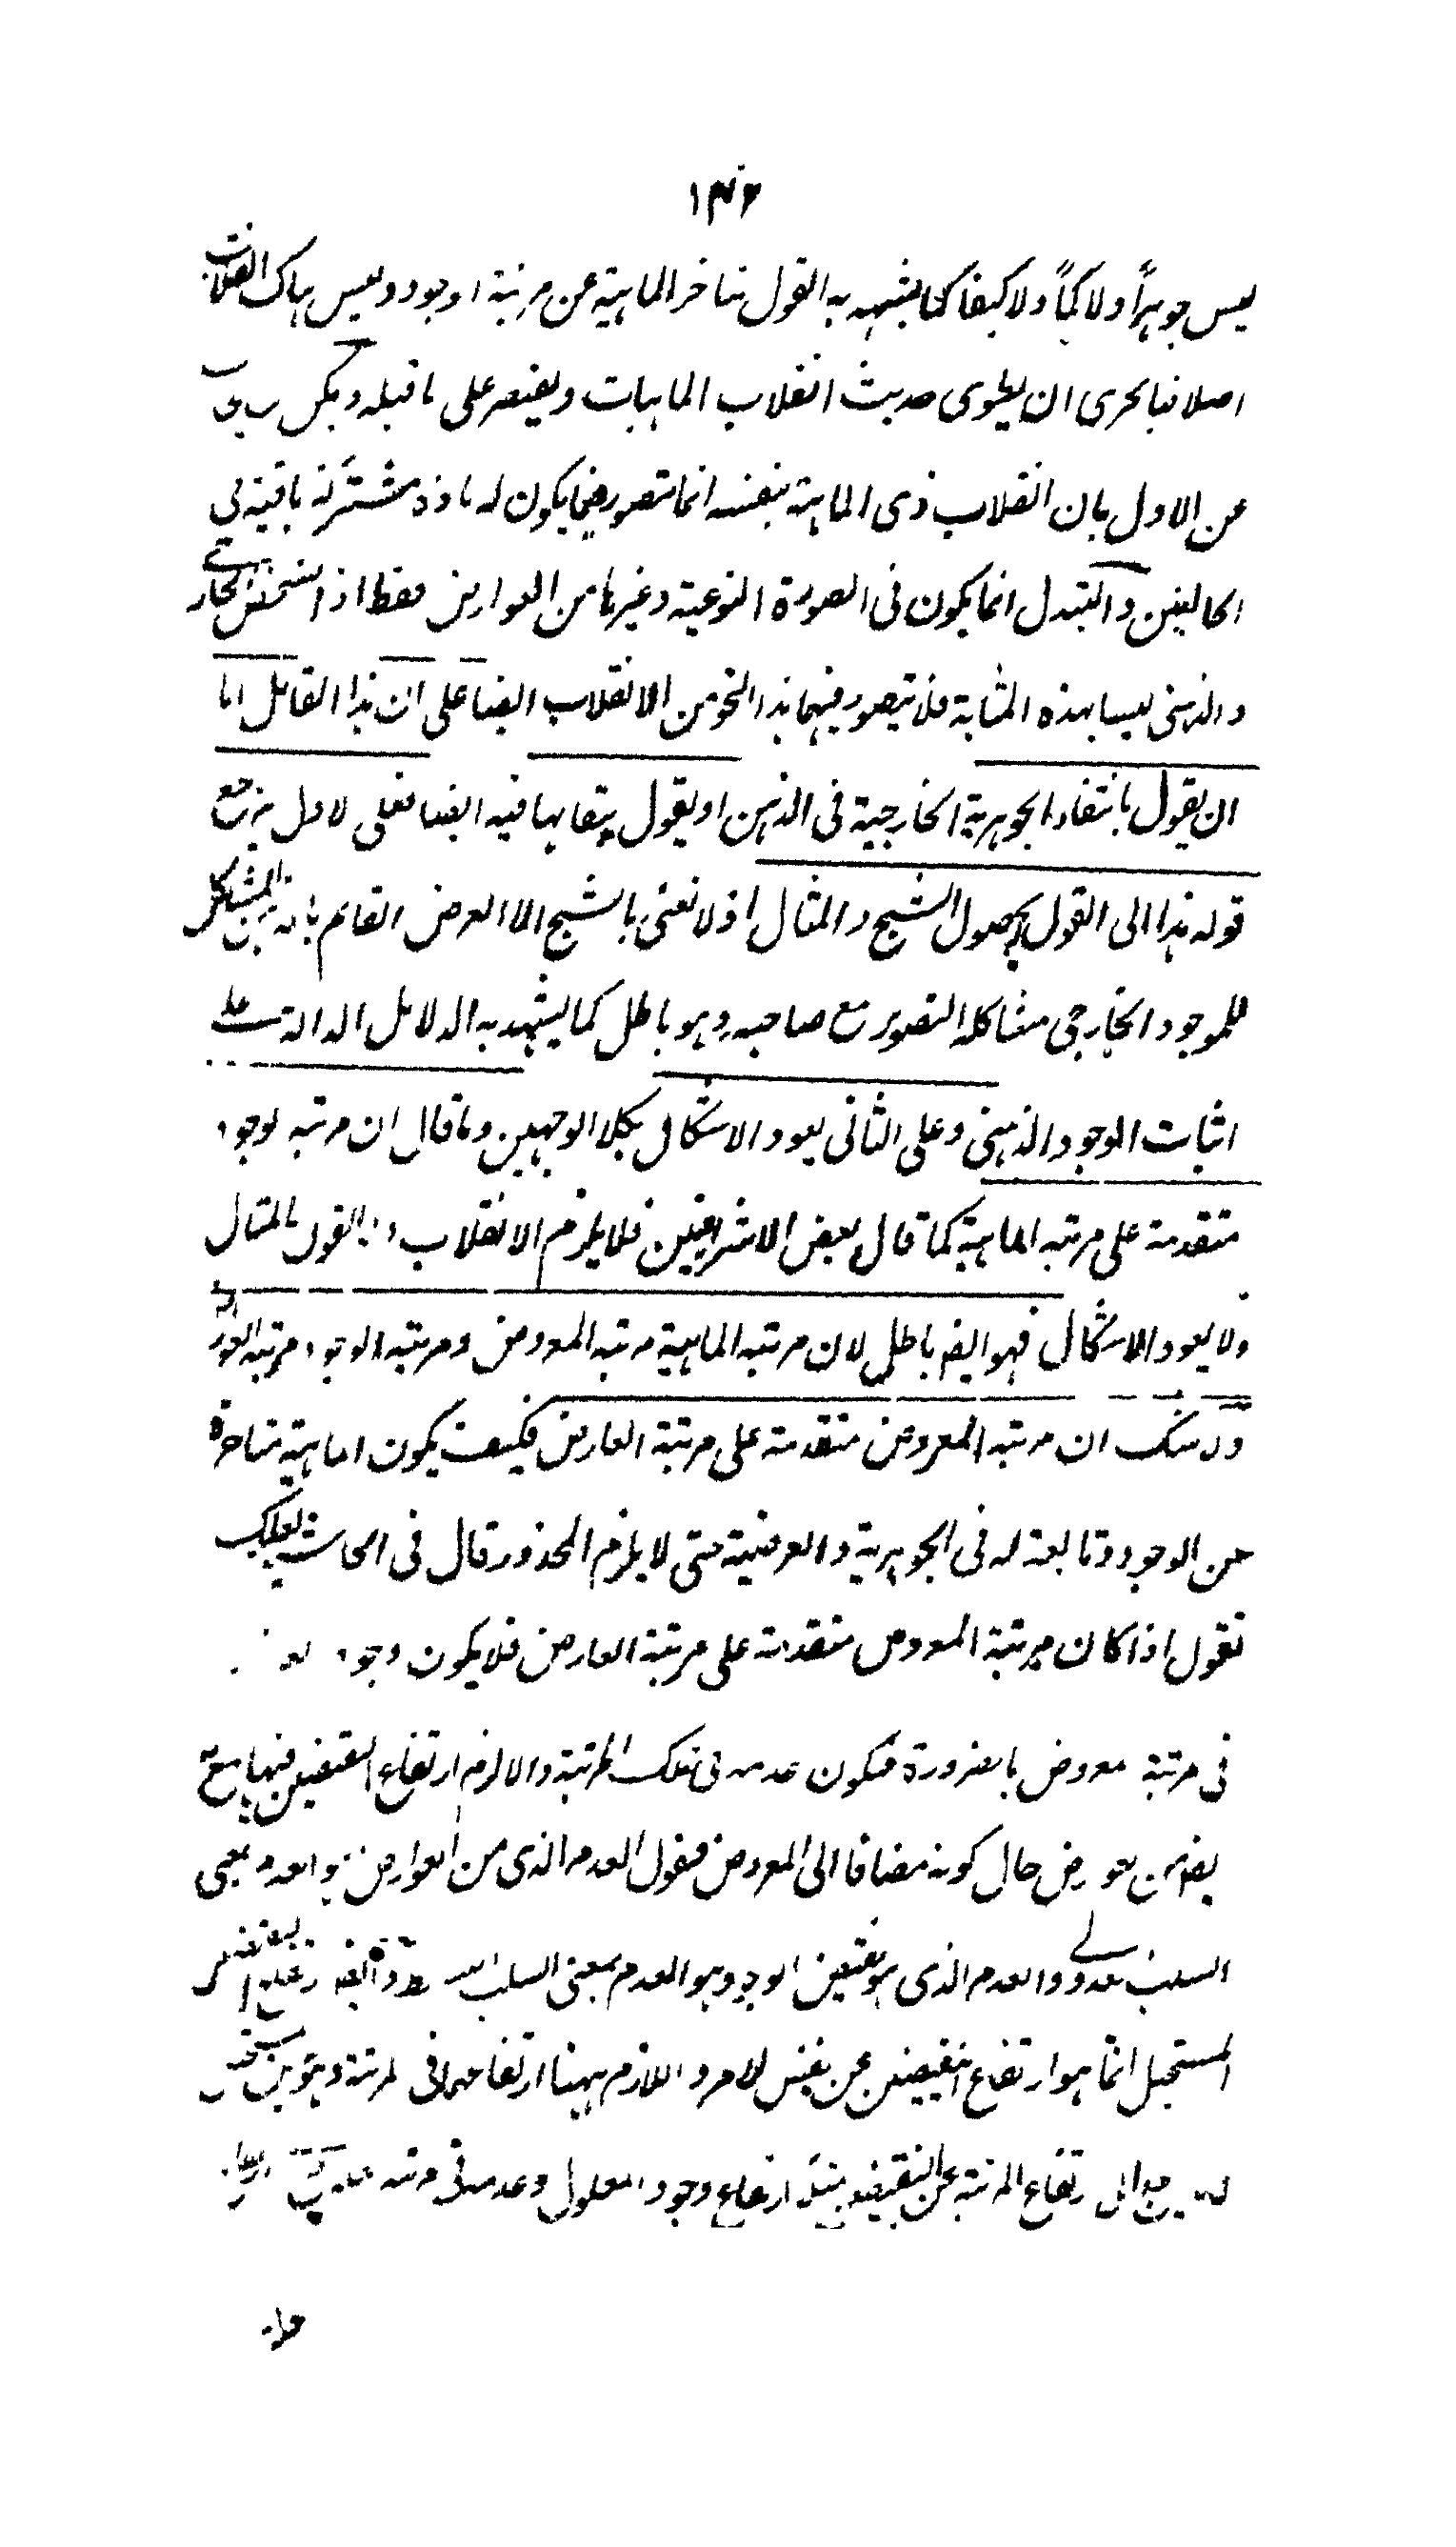 ١٣٦
ليس جوهراً ولا كمّاً ولا كيفا كما يشهد به القول بتاخر الماهية عن مرتبة الوجود وليس هناك انقلاب
اصلا فبالحرى ان يطوى حديث انقلاب الماهيات ويقتصر على ما قبله ويمكن
عن الاول بان انقلاب ذى الماهية بنفسه انما يتصور فيما يكون له مادة مشتركة باقية فى
الحالين والتبدل انما يكون فى الصورة النوعية وغيرها من العوارض فقط اذ الشخص الخارجى
والذهنى ليسا بهذه المثابة فلا يتصور فيهما هذا النحو من الانقلاب ايضا على ان هذا القائل اما
ان يقول بانتفاء الجوهرية الخارجية فى الذهن او يقول ببقائها فيه ايضا فعلى الاول يرجع
قوله هذا الى القول بحصول الشبح والمثال اذ لا نعنى بالشبح الا العرض القائم بالذهن المشاكل
للموجود الخارجى مشاكلة التصوير مع صاحبه وهو باطل كما يشهد به الدلائل الدالة على
اثبات الوجود الذهنى وعلى الثانى يعود الاشكال بكلا الوجهين وما قال ان مرتبة الوجود
متقدمة على مرتبة الماهية كما قال بعض الاشراقيين فلا يلزم الانقلاب والقول بالمثال
ولا يعود الاشكال فهو ايضا باطل لان مرتبة الماهية مرتبة المعروض ومرتبة الوجود مرتبة العارض
ولا شك ان مرتبة المعروض متقدمة على مرتبة العارض فكيف يكون الماهية متاخرة
عن الوجود وتابعة له فى الجوهرية والعرضية حتى لا يلزم المحذور قال فى الحاشية لعلك
تقول اذا كان مرتبة المعروض متقدمة على مرتبة العارض فلا يكون وجود
فى مرتبة المعروض بالضرورة فيكون عدمه فى تلك المرتبة والا لزم ارتفاع النقيضين فيها مع
حال كونه مضافا الى المعروض فنقول العدم الذى من العوارض هو العدم بمعنى
السلب العدولى والعدم الذى هو نقيض الوجود هو العدم بمعنى السلب
المستحيل انما هو ارتفاع النقيضين عن نفس الامر واللازم ههنا ارتفاعهما فى المرتبة وهو ليس
ارتفاع المرتبة عن النقيضين مثلا ارتفاع وجود المعلول وعدمه فى مرتبة